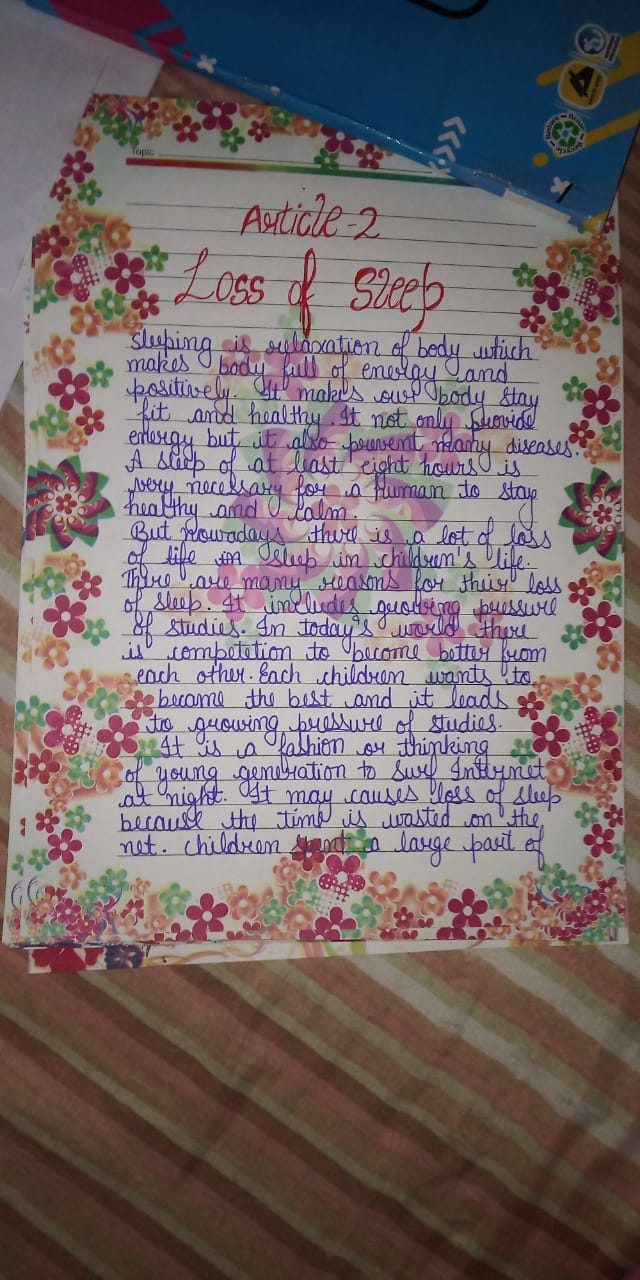 Topic
Article-2
Loss of Sleep
Sleeping is relaxation of body which
makes body full of energy and
positively. It makes our body stay
fit and healthy. It not only provide
energy but it also prevent many diseases.
A sleep of at least eight hours is
very necessary for a Human to stay
healthy and calm.
But Nowadays there is a lot of loss
of life in sleep in children's life.
There are many reasons for their loss
of sleep. It includes growing pressure
of studies. In today's world there
is competetion to become better from
each other. Each children wants to
became the best and it leads
to growing pressure of studies.
It is a fashion or thinking
of young generation to Surf Internet
at night. It may causes loss of sleep
because the time is wasted on the
net. children spent a large part of